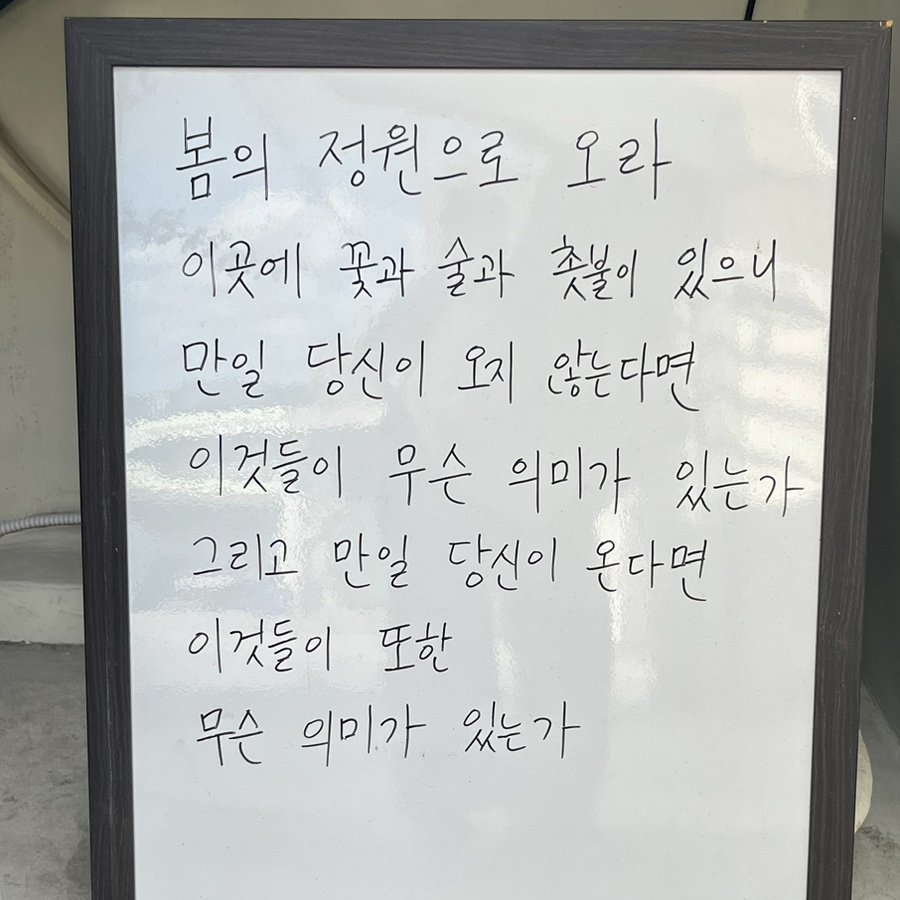 봄의 정원으로 오라
이곳에 꽃과 술과 촛불이 있으니
만일 당신이 오지 않는다면
이것들이 무슨 의미가 있는가
그리고 만일 당신이 온다면
이것들이 또한
무슨 의미가 있는가